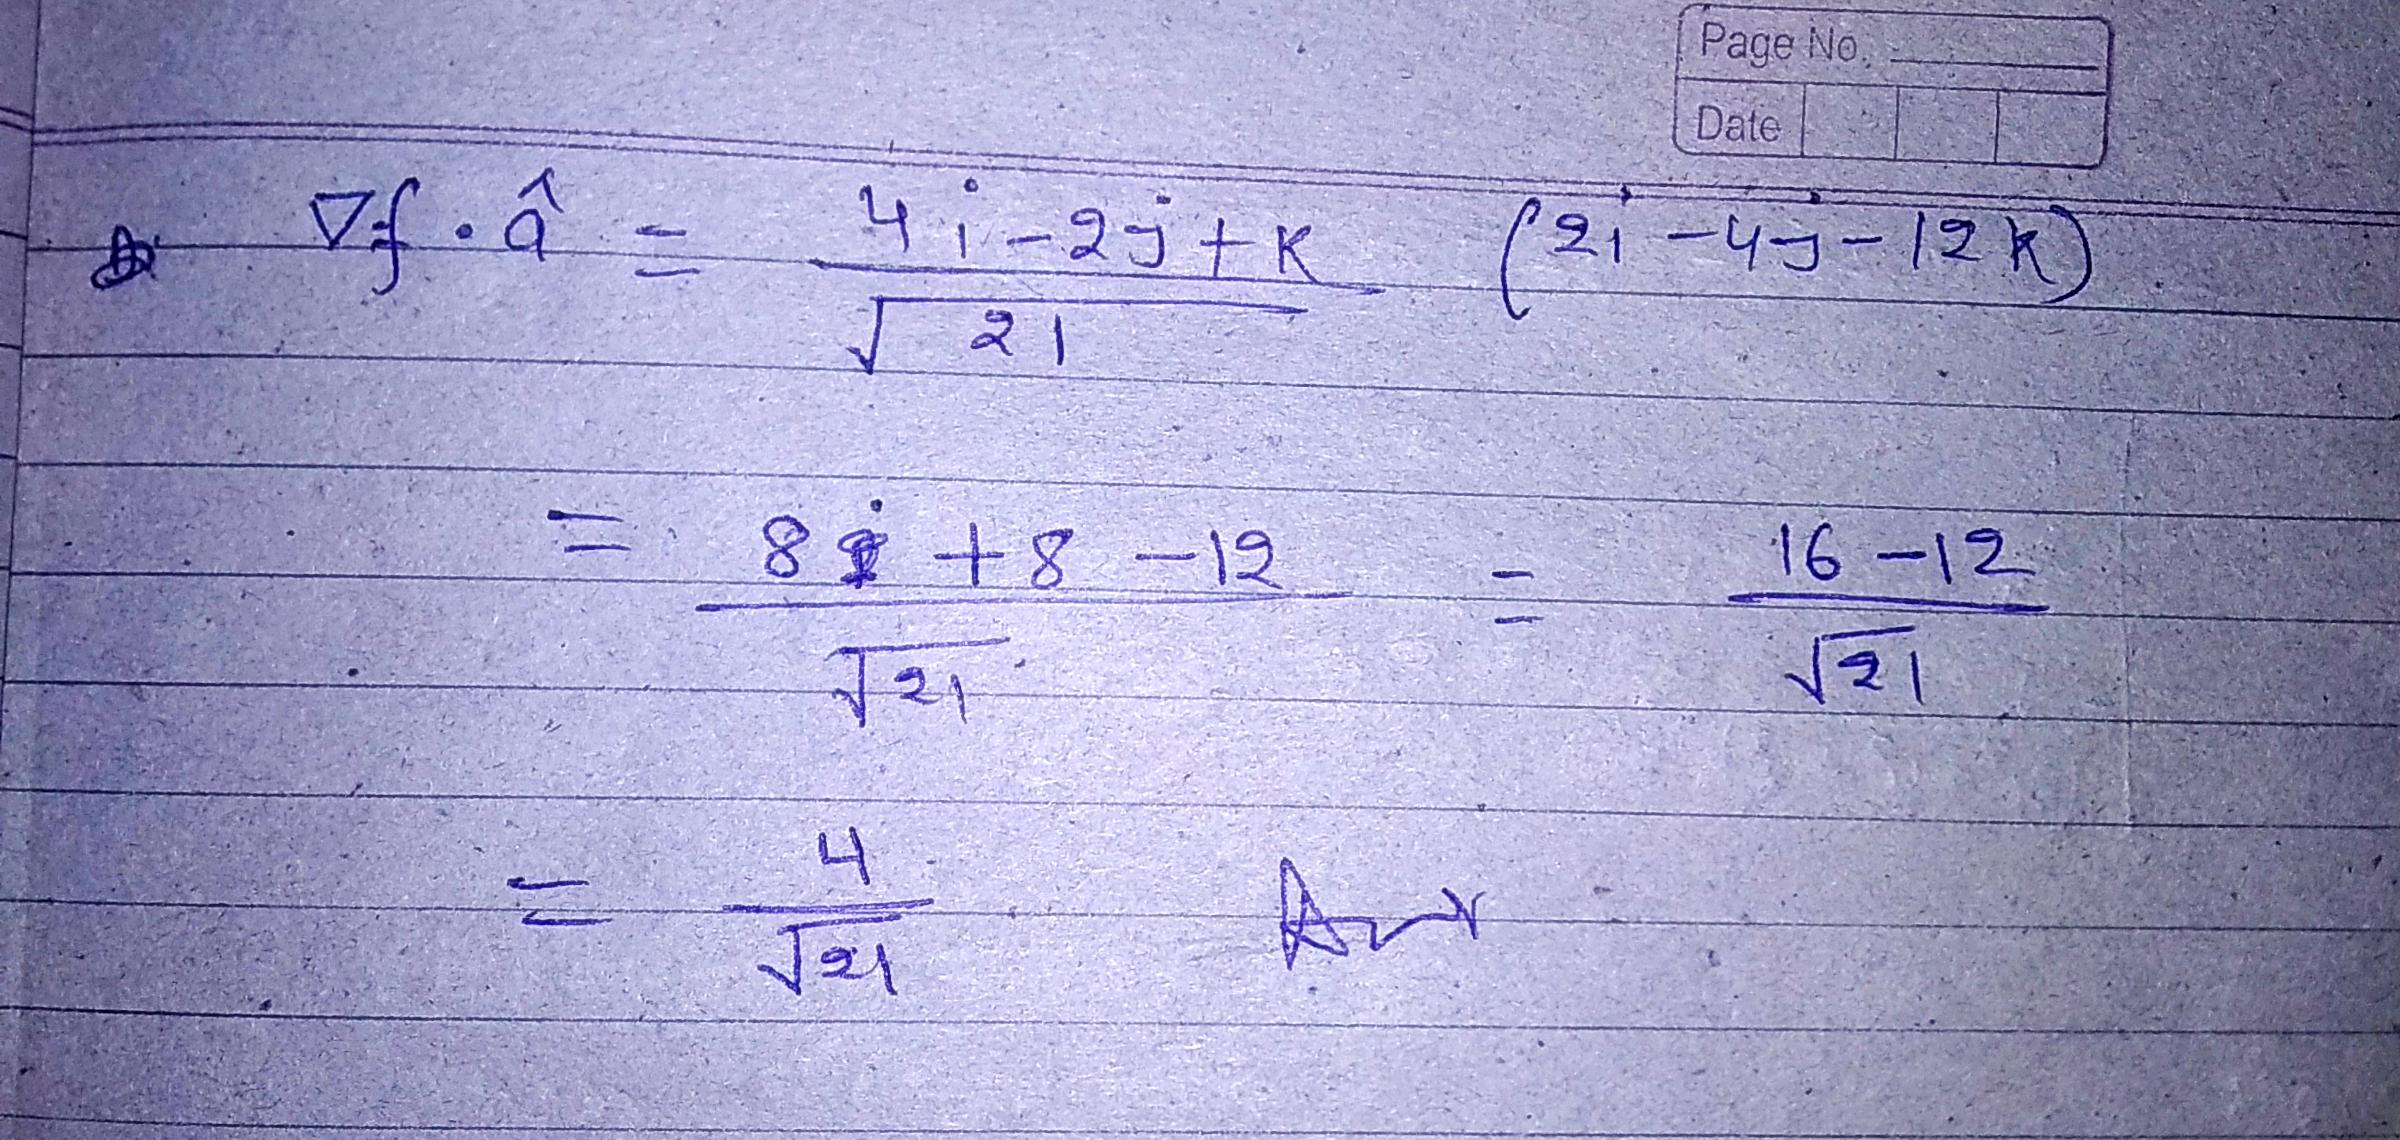 Page No.
Date
∇f · â = 4i - 2j + k / √21 (2i - 4j - 12k)
= 8 + 8 - 12 / √21 = 16 - 12 / √21
= 4 / √21 Ans